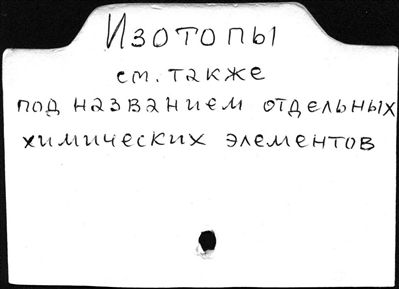 Изотопы
см. также
под названием отдельных
химических элементов